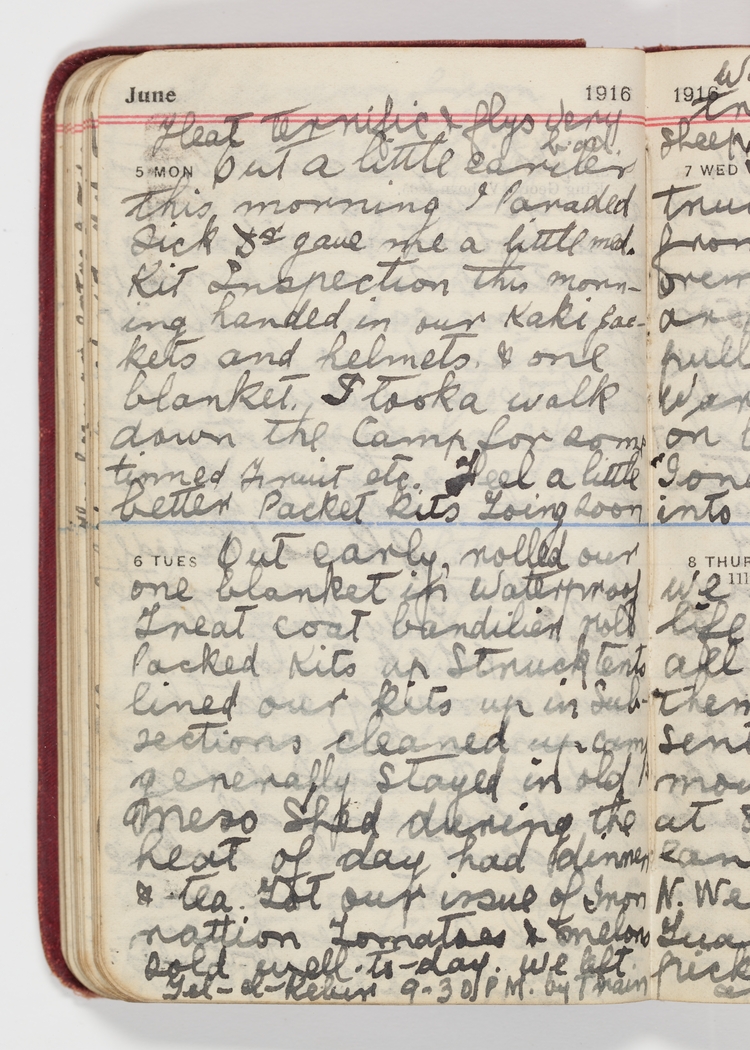 June 1916
Heat terrific & flys very
bad.
5 MON Out a little earlier
this morning I Paraded
Sick Dr gave me a little med.
Kit Inspection this morn-
ing handed in our Kaki Jac-
kets and helmets. & one
blanket. I took a walk
down the Camp for some
tinned Fruit etc. Feel a little
better Packet Kits Going soon
6 TUES Out early, rolled our
one blanket in Waterproof
Great coat bandilier roll
Packed Kits up Struck tents
lined our Kits up in Sub-
sections cleaned up camp
generally Stayed in old
Mess Shed during the
heat of day had dinner
& tea. Got our issue of Iron
rattion Tomatoes & melons
sold well to-day. we left
Tel-el-Kebir 9-30 P.M. by Train
1916
sheep
7 WED
from
are
pull
on
into
8 THUR
we
life
all
them
sent
at
N. We